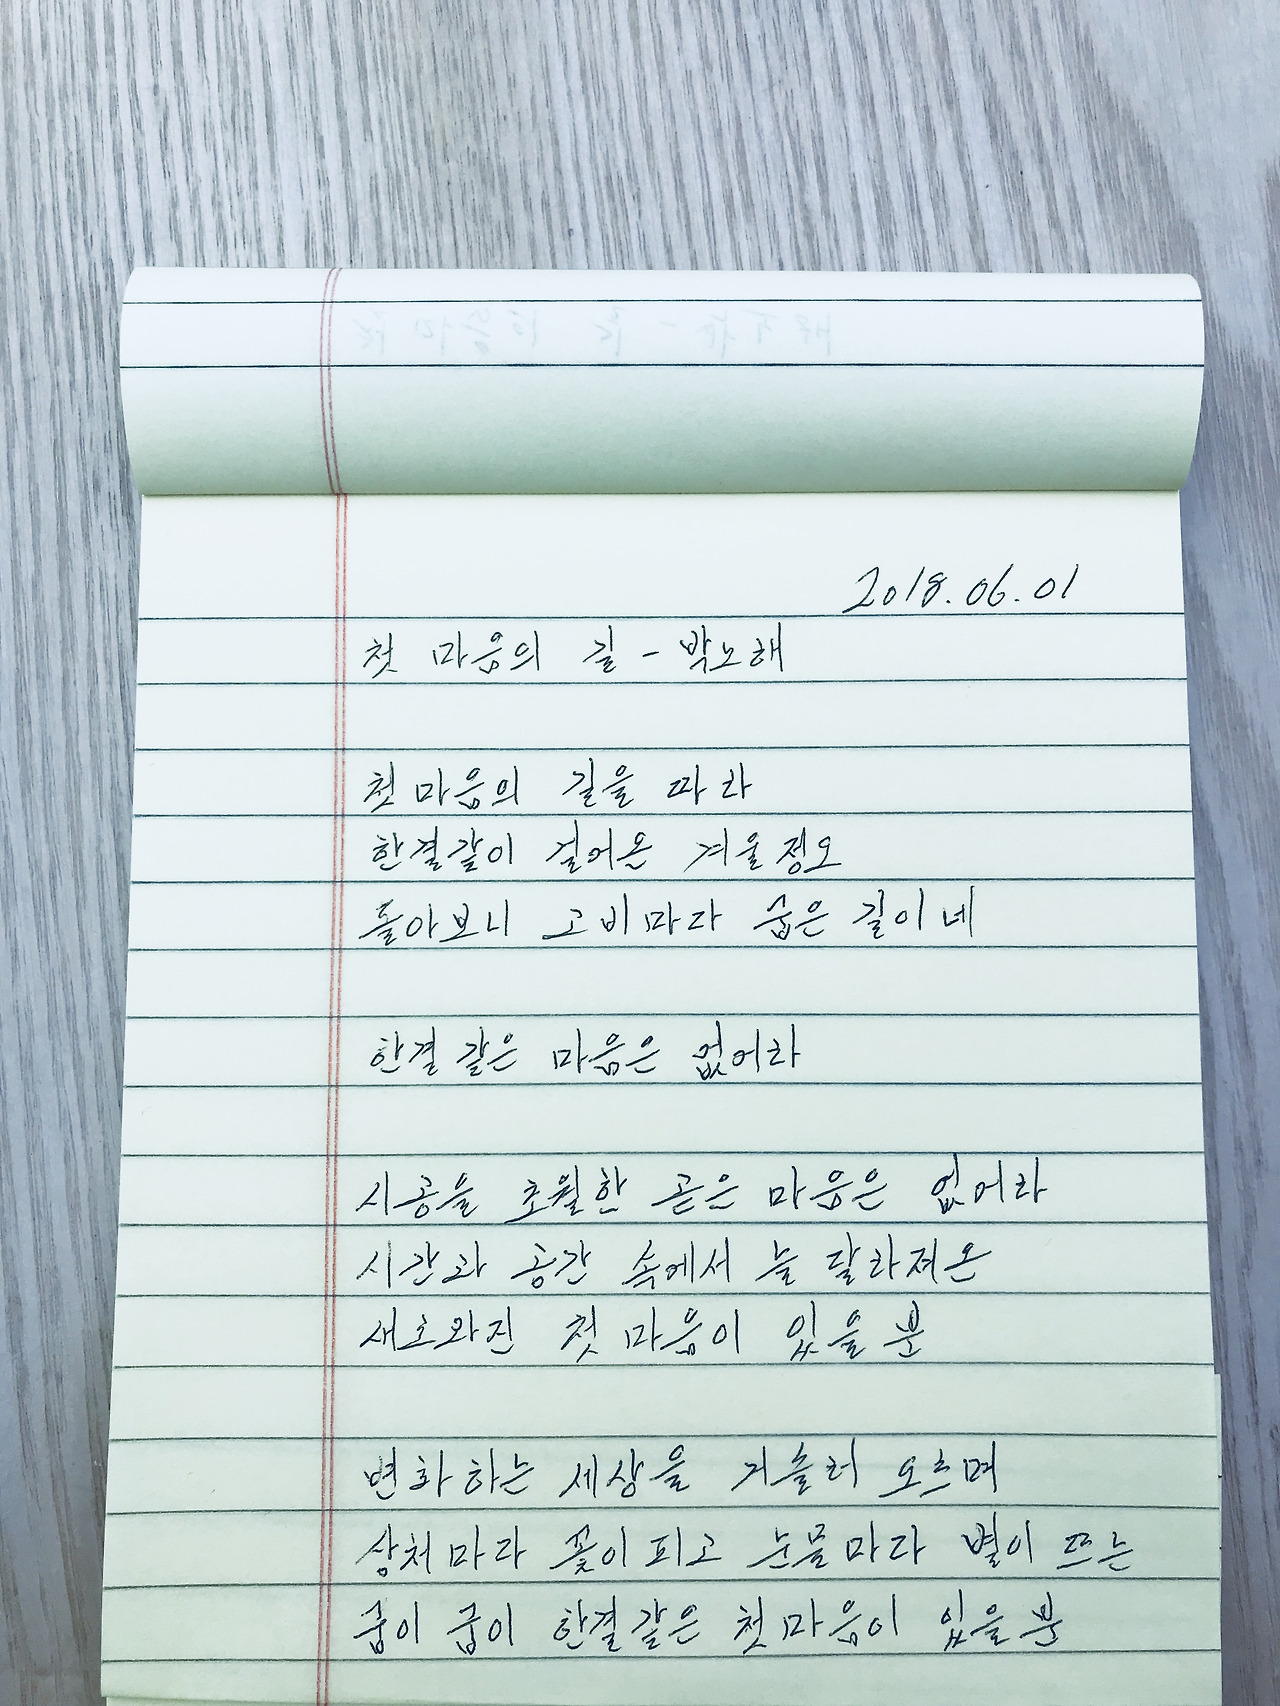 2018.06.01
첫 마음의 길 - 박노해
첫마음의 길을 따라
한결같이 걸어온 겨울정오
돌아보니 고비마다 굽은 길이네
한결같은 마음은 없어라
시공을 초월한 곧은 마음은 없어라
시간과 공간 속에서 늘 달라져온
새로와진 첫 마음이 있을 뿐
변화하는 세상을 거슬러 오르며
상처마다 꽃이 피고 눈물마다 별이 뜨는
굽이 굽이 한결같은 첫마음이 있을 뿐